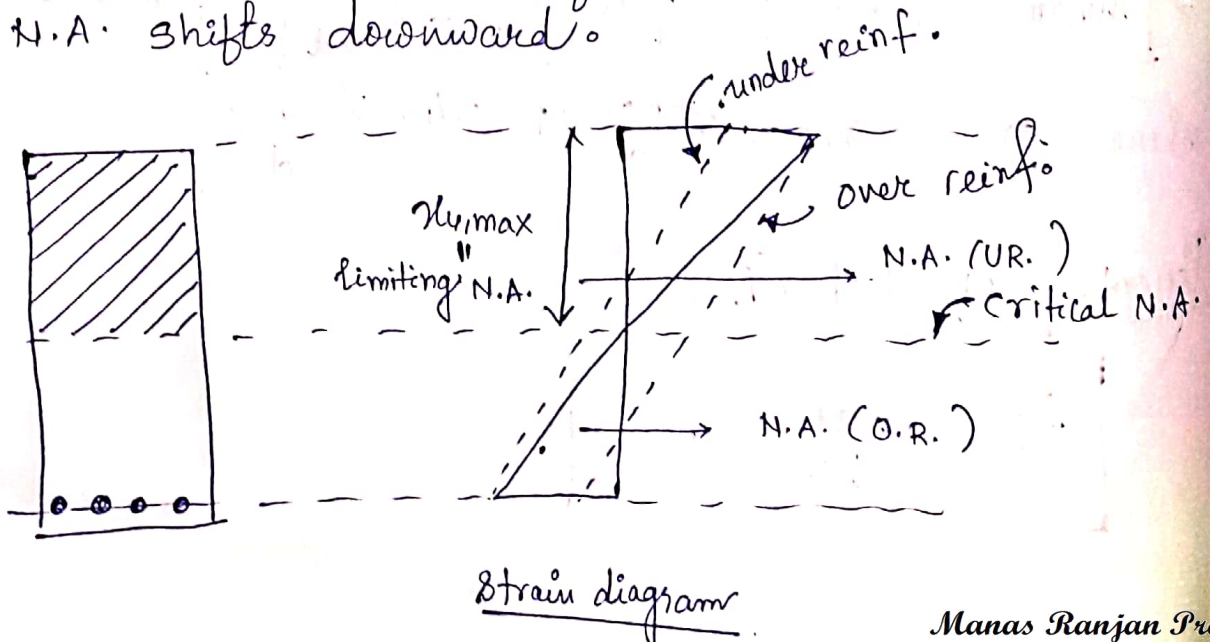 N.A. shifts downward.
under reinf.
over reinf.
xu,max
"
limiting N.A.
N.A. (UR.)
Critical N.A.
N.A. (O.R.)
Strain diagram
Manas Ranjan Pr